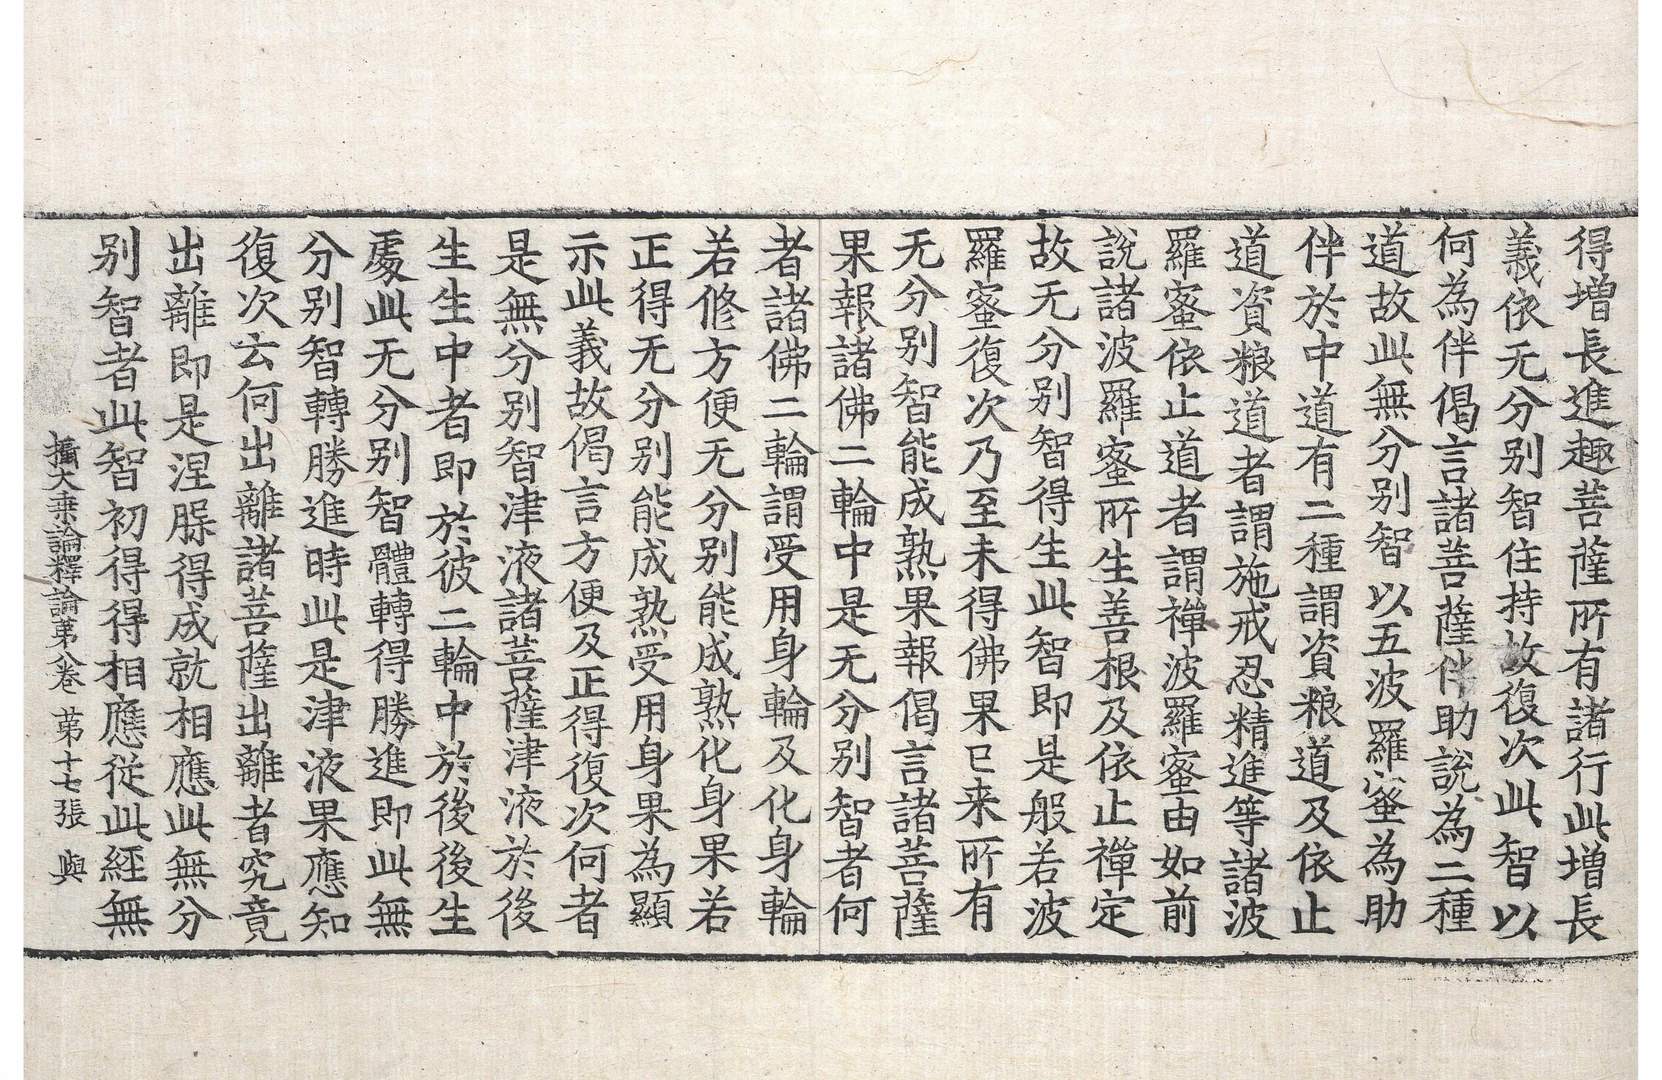 得增長進趣菩薩所有諸行此增長
義依无分别智住持故復次此智以
何為伴偈言諸菩薩伴助說為二種
道故此無分别智以五波羅蜜為助
伴於中道有二種謂資粮道及依止
道資粮道者謂施戒忍精進等諸波
羅蜜依止道者謂禪波羅蜜由如前
說諸波羅蜜所生善根及依止禪定
故无分别智得生此智即是般若波
羅蜜復次乃至未得佛果已来所有
无分别智能成熟果報偈言諸菩薩
果報諸佛二輪中是无分别智者何
者諸佛二輪謂受用身輪及化身輪
若修方便无分别能成熟化身果若
正得无分别能成熟受用身果為顯
示此義故偈言方便及正得復次何者
是無分别智津液諸菩薩津液於後
生生中者即於彼二輪中於後後生
處此无分别智體轉得勝進即此無
分别智轉勝進時此是津液果應知
復次云何出離諸菩薩出離者究竟
出離即是涅槃得成就相應此無分
别智者此智初得得相應從此經無
攝大乗論釋論第八卷　苐十七張　與